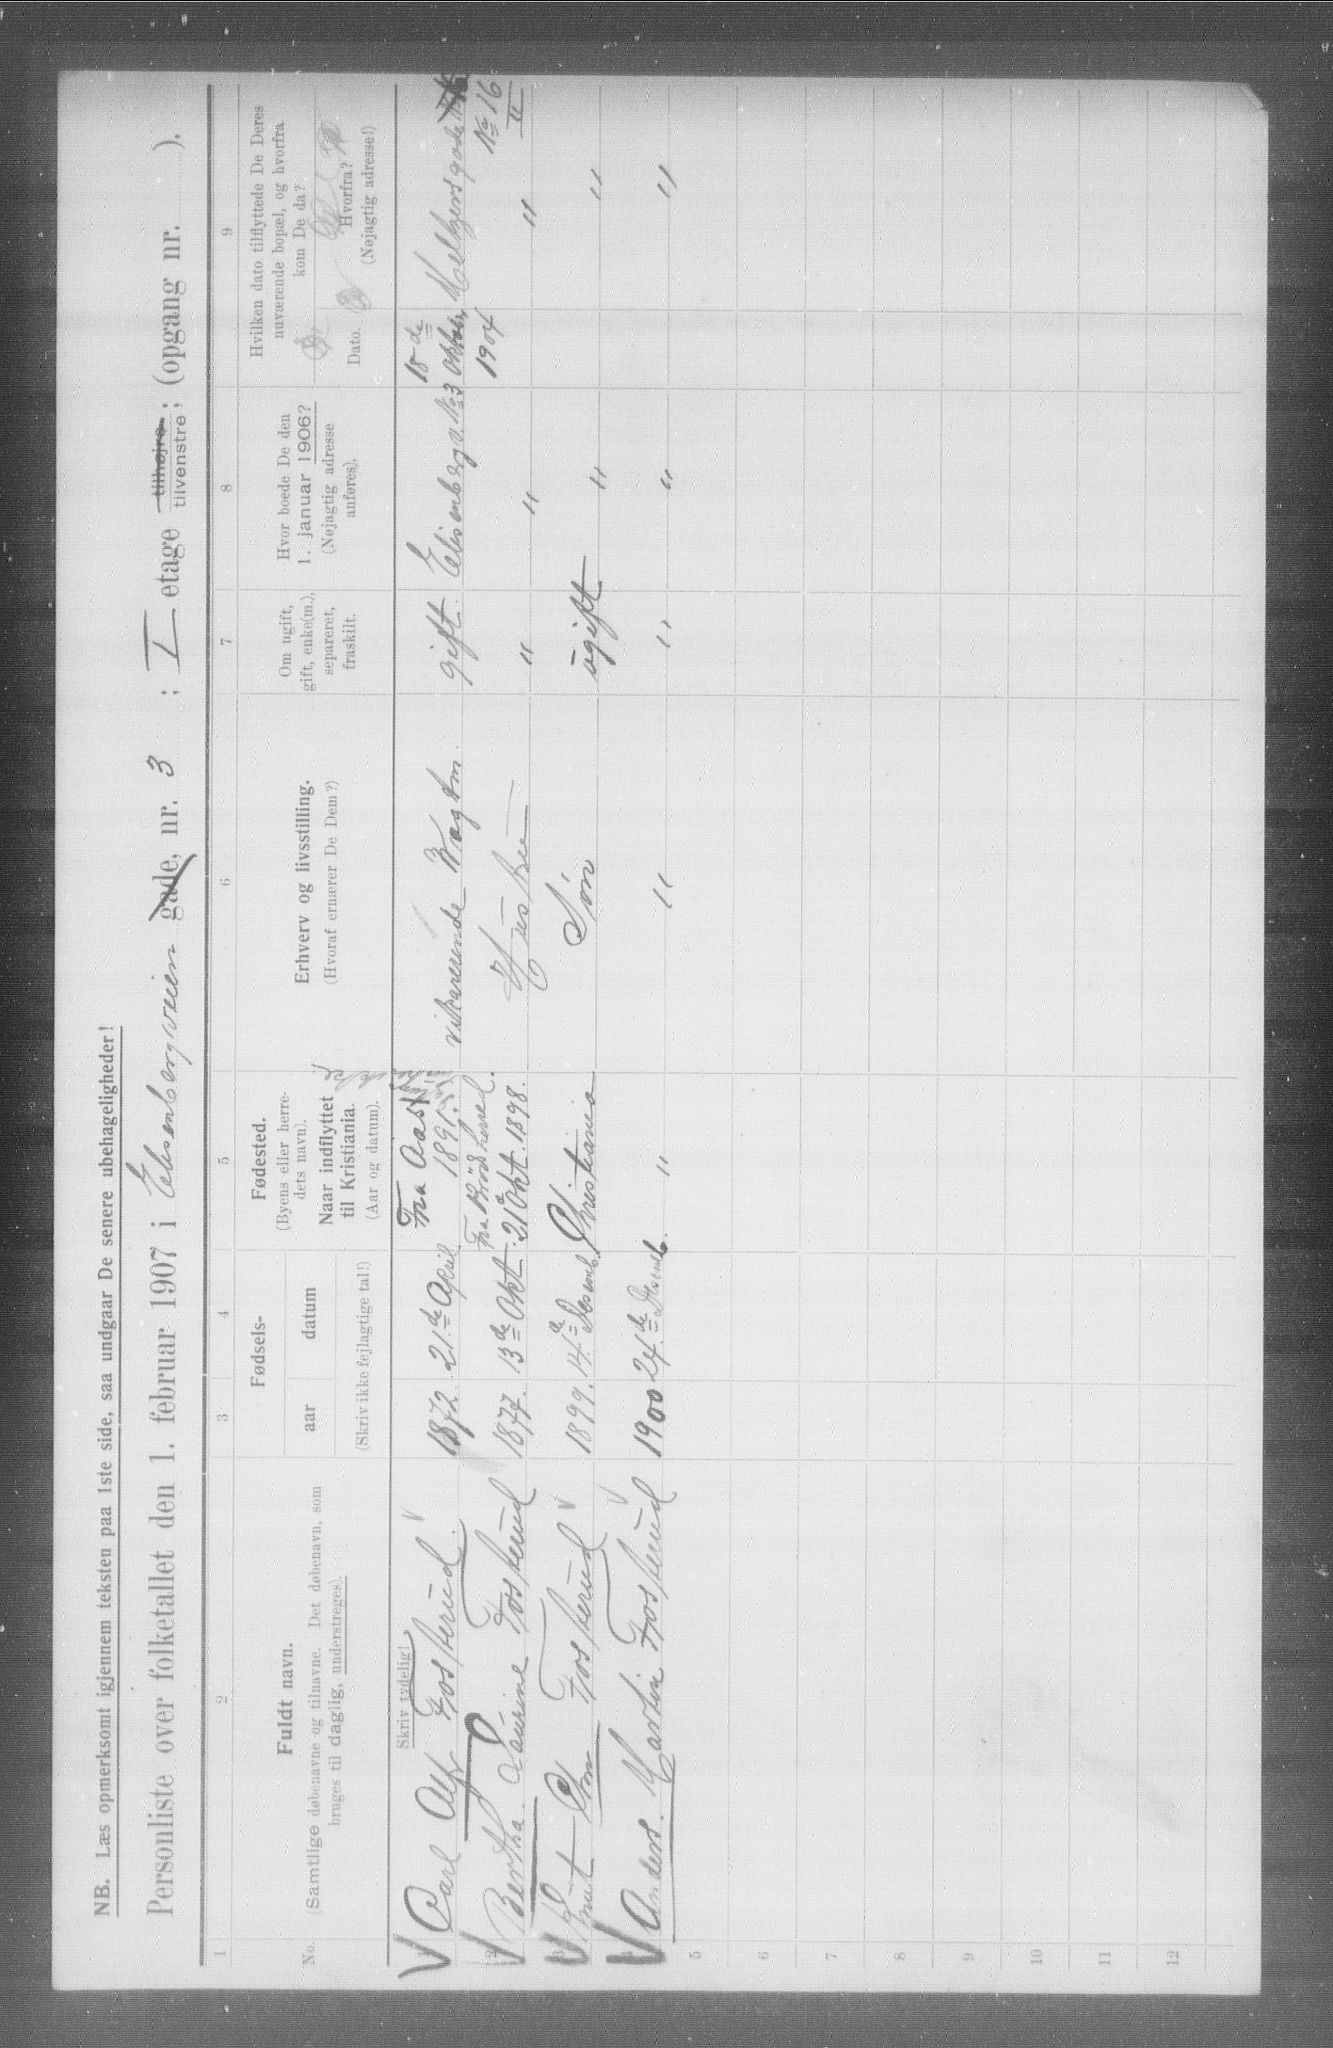 NB. Læs opmerksomt igjennem teksten paa 1ste side, saa undgaar De senere ubehageligheder!
Personliste over folketallet den 1. februar 1907 i Elisenbergveien gade, nr. 3 ; I etage tilhøjre tilvenstre ; (opgang nr. ).
1 2 3 4 5 6 7 8 9
No.
Fuldt navn.
(Samtlige døbenavne og tilnavne. Det døbenavn, som
bruges til daglig, understreges).
Skriv tydelig!
Fødsels-
aar datum
(Skriv ikke fejlagtige tal!)
Fødested.
(Byens eller herre-
dets navn).
Naar indflyttet
til Kristiania.
(Aar og datum).
Erhverv og livsstilling.
(Hvoraf ernærer De Dem?)
Om ugift,
gift, enke(m.),
separeret,
fraskilt.
Hvor boede De den
1. januar 1906?
(Nøjagtig adresse
anføres).
Hvilken dato tilflyttede De Deres
nuværende bopæl, og hvorfra
kom De da?
Dato. Hvorfra?
(Nøjagtig adresse!)
1 Carl Alf Fosserud. 1872 21de April Fra Aas 1891. vikarerende Vagtm. gift. Elisenberg v. No 3 18de Oktober 1904 Meltzersgade No 16 II
2 Bertha Laurine Fosserud 1877. 13de Okt. 21 Okt. 1898. Hustru " " "
3 Knut Fosserud 1899. 14de Desemb. Christiania Søn ugift " "
4 Anders Martin Fosserud 1900 24de Desemb. " " " " "
5
6
7
8
9
10
11
12